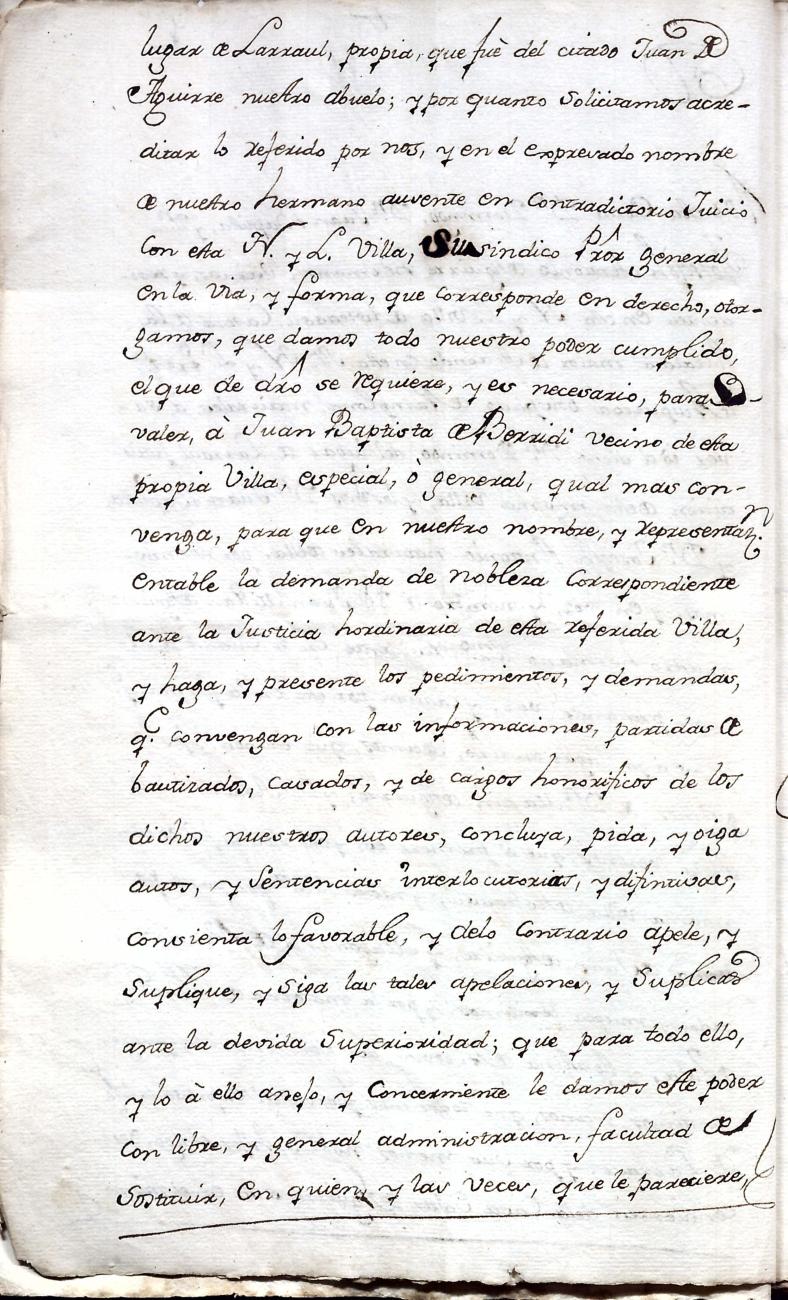 lugar de Larraul, propia, que fuè del citado Juan de
Aguirre nuestro abuelo; y por quanto solicitamos acre-
ditar lo referido por nos, y en el expresado nombre
de nuestro hermano ausente en contradictorio Juicio
con esta N. y L. Villa, Su sindico Pror general
en la via, y forma, que corresponde en derecho, otor-
gamos, que damos todo nuestro poder cumplido,
el que de dro se requiere, y es necesario, para
valer, à Juan Baptista de Berridi vecino de esta
propia Villa, especial, ò general, qual mas con-
venga, para que en nuestro nombre, y representaz.n
entable la demanda de nobleza correspondiente
ante la Justicia hordinaria de esta referida Villa,
y haga, y presente los pedimientos, y demandas,
q.e convengan con las informaciones, partidas de
bautizados, casados, y de cargos honorificos de los
dichos nuestros autores, concluya, pida, y oiga
autos, y Sentencias interlocutorias, y difintivas,
consienta lo favorable, y delo contrario apele, y
Suplique, y siga las tales apelaciones, y Suplicas
ante la devida Superioridad; que para todo ello,
y lo à ello anejo, y concerniente le damos este poder
con libre, y general administracion, facultad de
Sostituir, en quien, y las veces, que le pareciere,